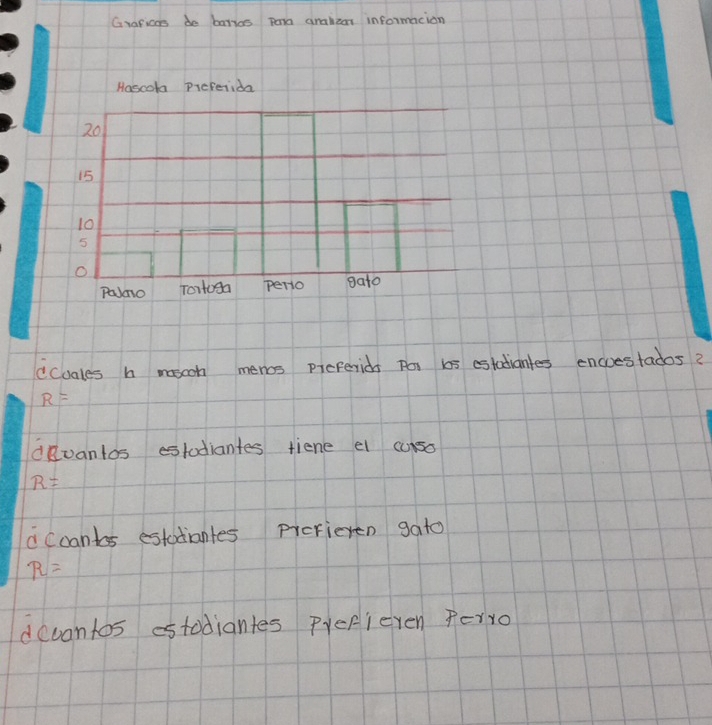 Graficas de barras para analizar informacion
Mascota Preferida
20
15
10
5
0
Pajaro Tortuga Perro gato
¿Cuales la mascota menos preferida por los estudiantes encuestados?
R=
¿Cuantos estudiantes tiene el curso
R=
¿Cuantos estudiantes Prefieren gato
R=
¿cuantos estudiantes Prefieren Perro